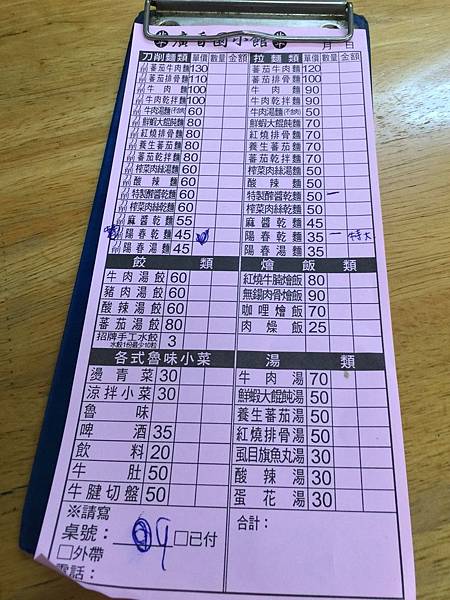 廣香園小館
月 日
刀削麵類 單價 數量 金額 拉麵類 單價 數量 金額
蕃茄牛肉麵 130 蕃茄牛肉麵 120
蕃茄排骨麵 110 蕃茄排骨麵 100
牛肉麵 100 牛肉麵 90
牛肉乾拌麵 100 牛肉乾拌麵 90
牛肉湯麵(不含肉) 60 牛肉湯麵(不含肉) 50
鮮蝦大餛飩麵 80 鮮蝦大餛飩麵 70
紅燒排骨麵 80 紅燒排骨麵 70
養生蕃茄麵 80 養生蕃茄麵 70
蕃茄乾拌麵 80 蕃茄乾拌麵 70
榨菜肉絲湯麵 60 榨菜肉絲湯麵 50
酸辣麵 60 酸辣麵 50
特製醡醬乾麵 60 特製醡醬乾麵 50 一
榨菜肉絲乾麵 60 榨菜肉絲乾麵 50
麻醬乾麵 55 麻醬乾麵 45
陽春乾麵 45 陽春乾麵 35 一 特大
陽春湯麵 45 陽春湯麵 35
餃類 燴飯類
牛肉湯餃 60 紅燒牛腩燴飯 80
豬肉湯餃 60 無錫肉骨燴飯 90
酸辣湯餃 60 咖哩燴飯 70
蕃茄湯餃 80 肉燥飯 25
招牌手工水餃 3
水餃1份最少10粒
各式魯味小菜 湯類
燙青菜 30 牛肉湯 70
涼拌小菜 30 鮮蝦大餛飩湯 50
魯味 養生蕃茄湯 50
啤酒 35 紅燒排骨湯 50
飲料 20 虱目旗魚丸湯 30
牛肚 50 酸辣湯 30
牛腱切盤 50 蛋花湯 30
※請寫 合計：
桌號： 04 □已付
□外帶
電話：